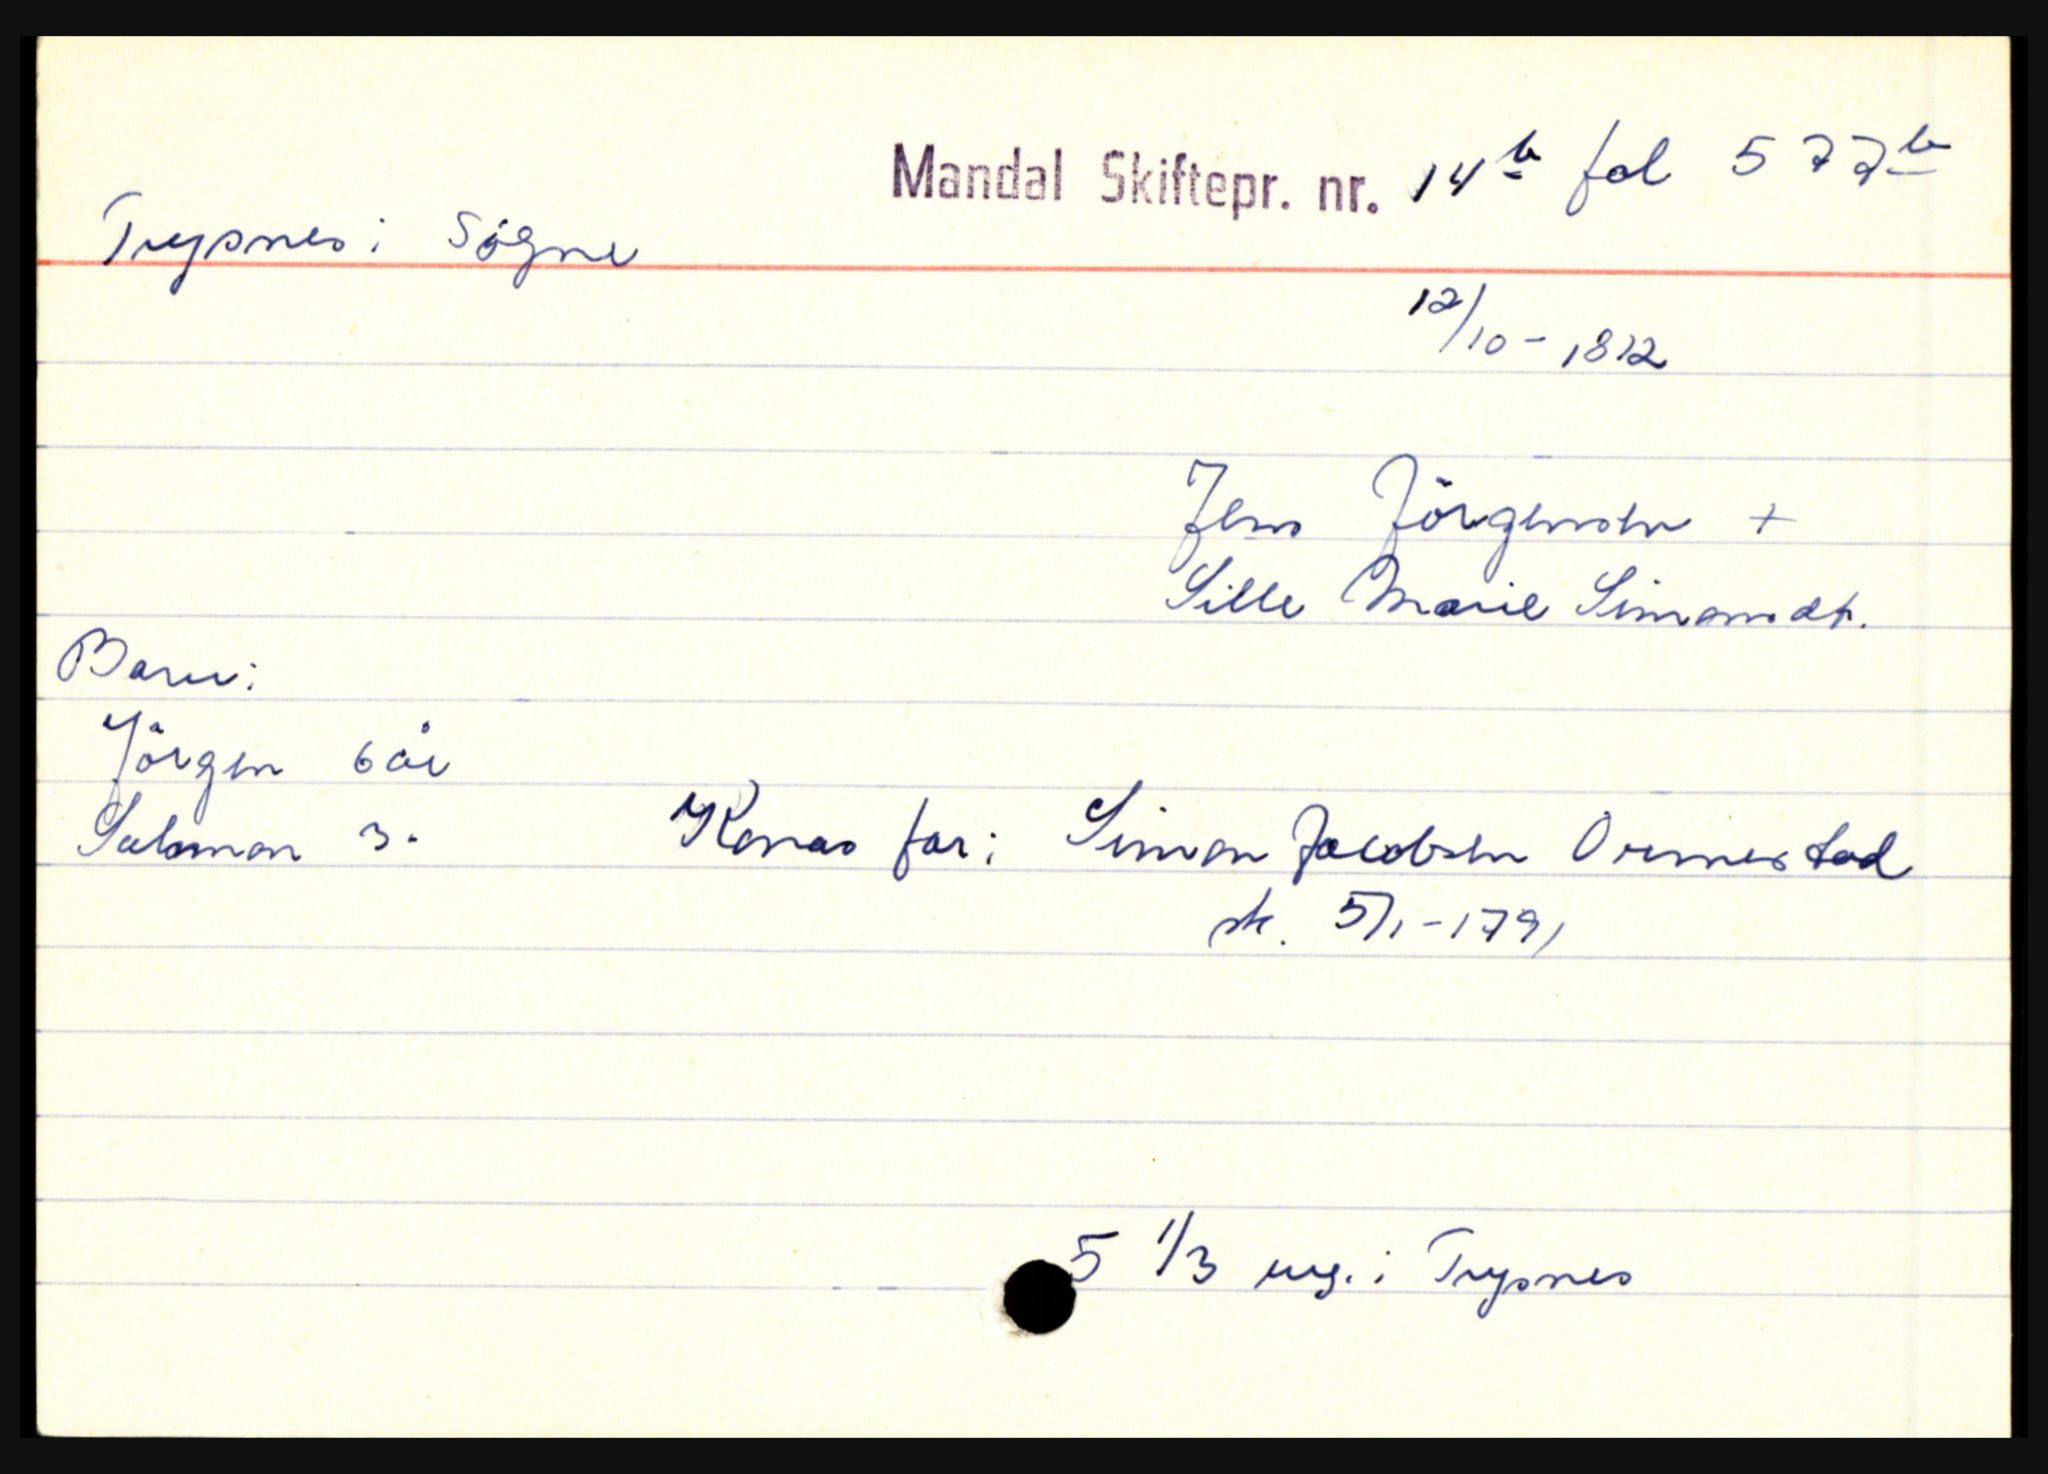 Mandal Skiftepr. nr. 14b fol 577b
Trysnes i Søgne
12/10-1812
Jens Jörgensen +
Sille Marie Simonsdt.
Barn:
Jörgen 6 år
Salomon 3.
Konas far: Simon Jacobsen Ormestad
sk. 5/1-1791
5 1/3 eng. i Trysnes